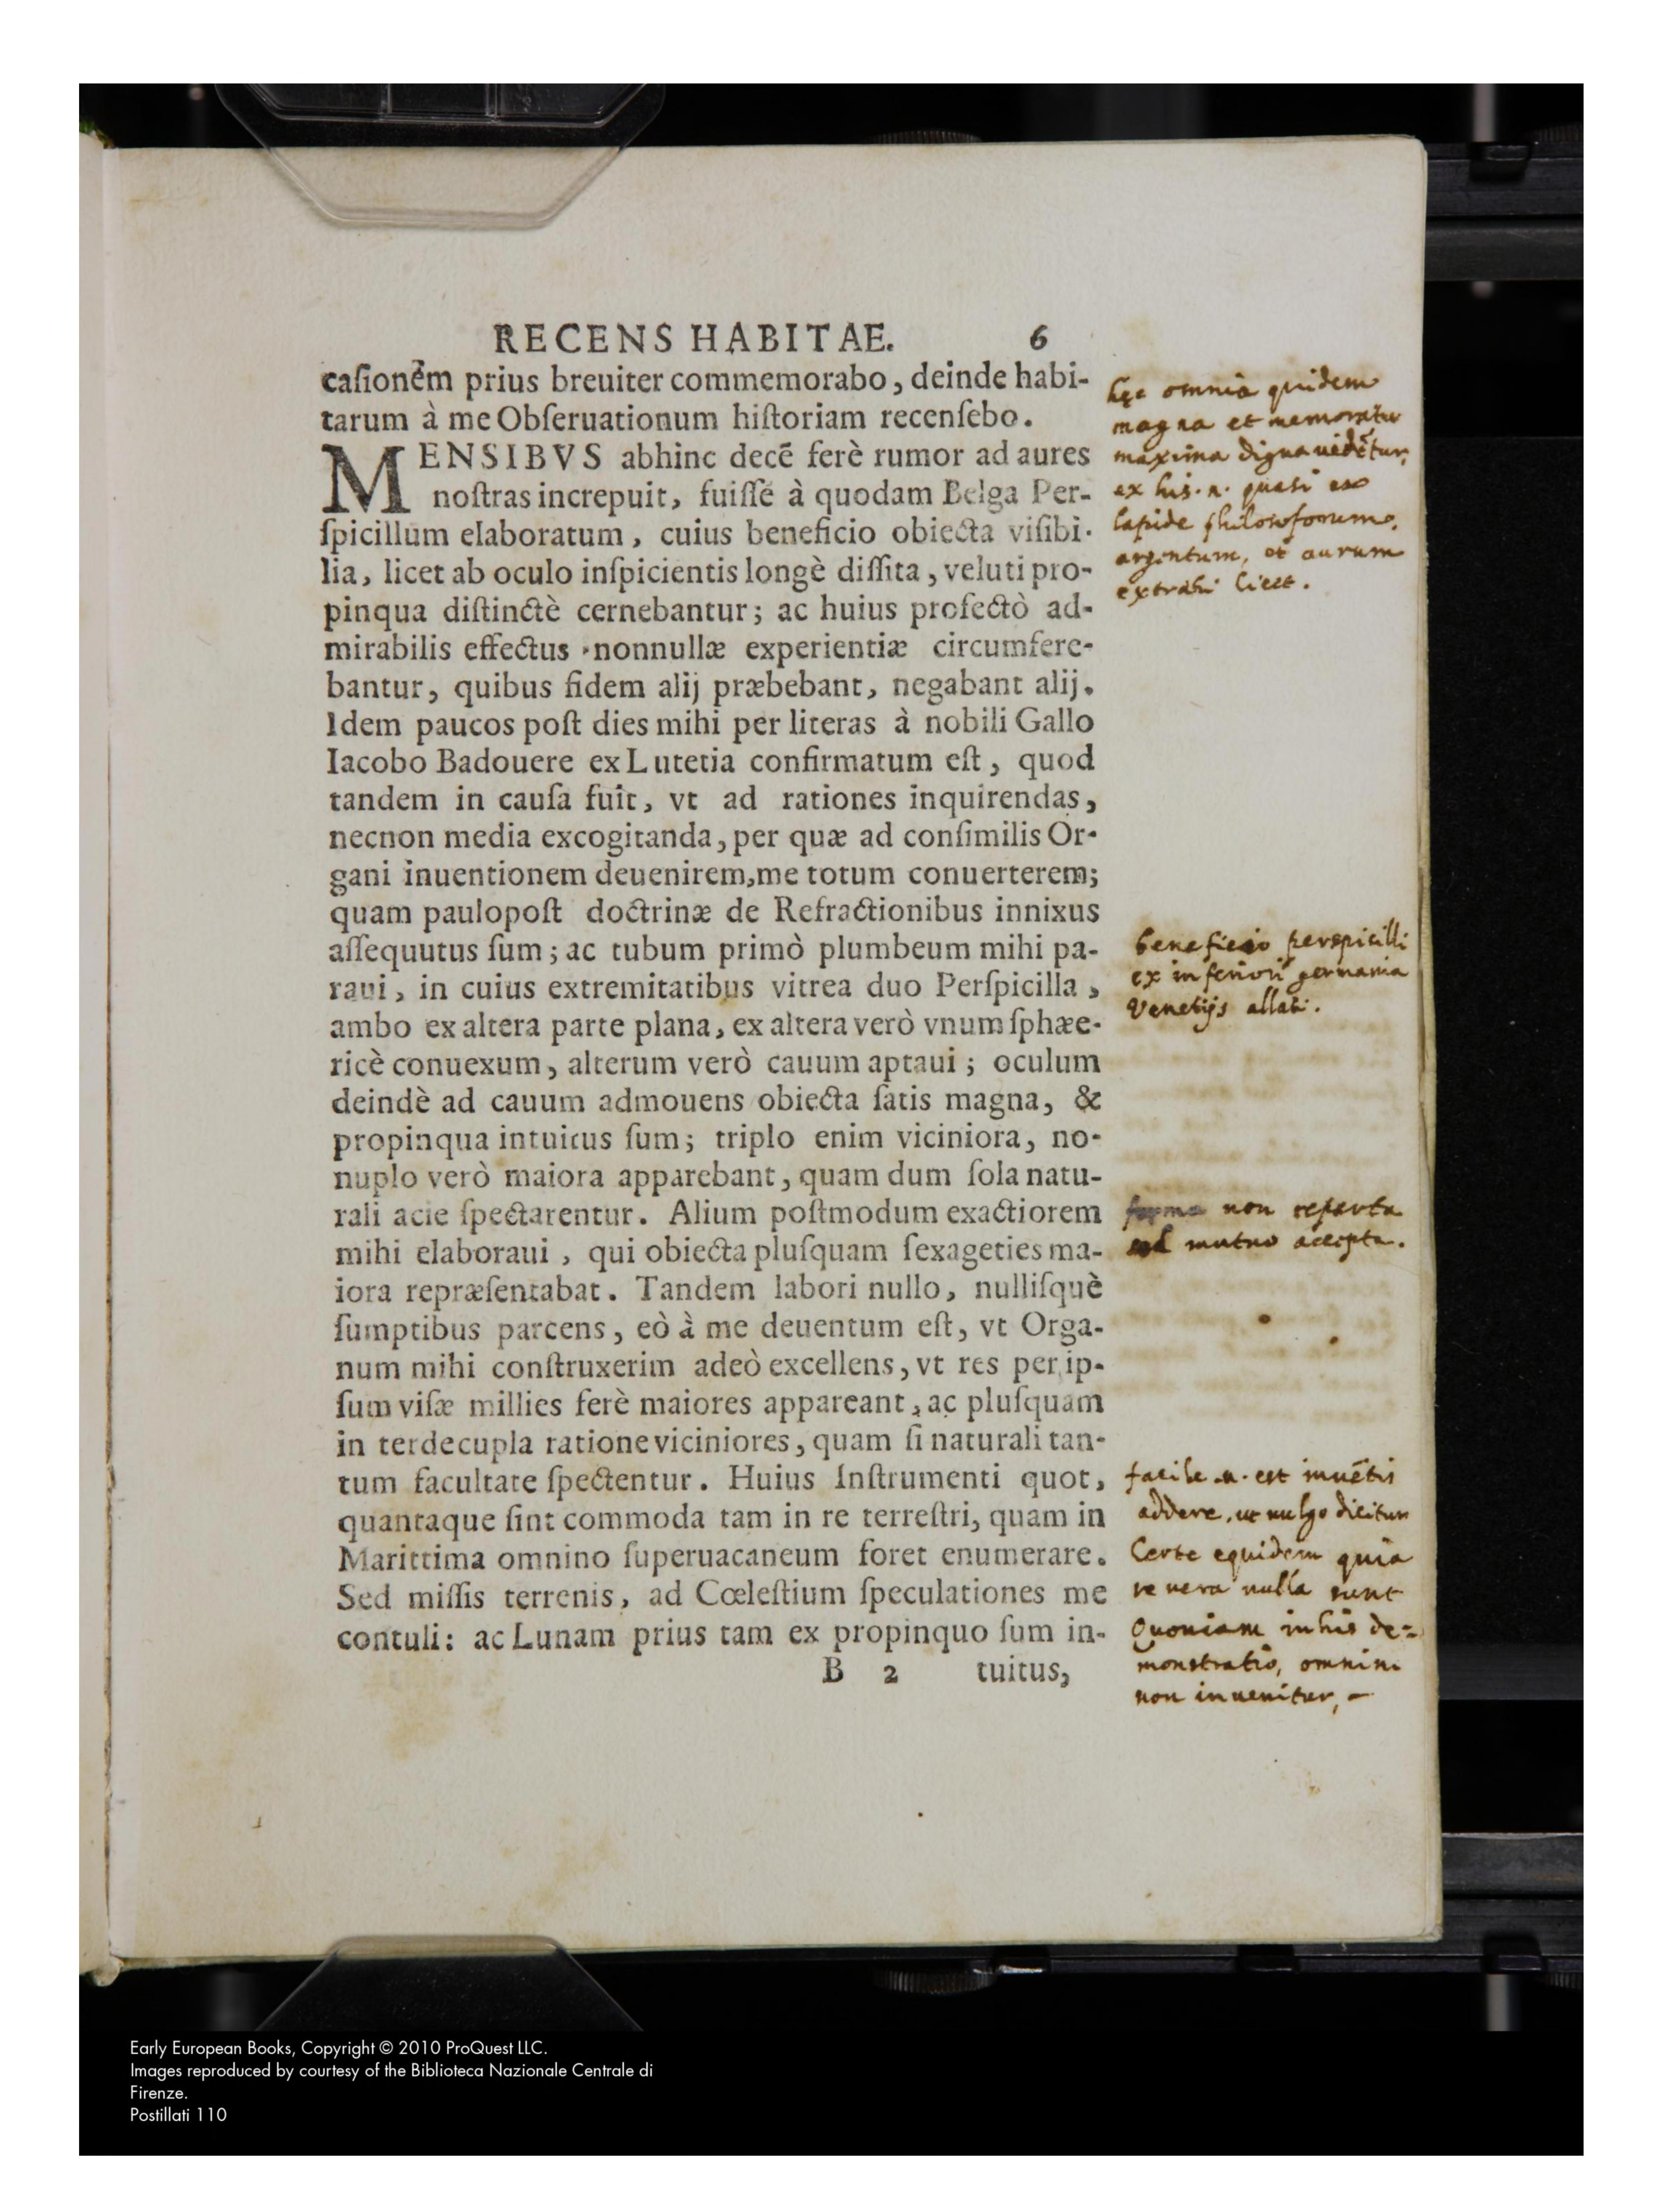 RECENS HABITAE. 6
caſionẽm prius breuiter commemorabo, deinde habi-
tarum à me Obſeruationum hiſtoriam recenſebo.
MENSIBVS abhinc decẽ ferè rumor ad aures
noſtras increpuit, fuiſſe à quodam Belga Per-
ſpicillum elaboratum, cuius beneficio obiecta viſibi-
lia, licet ab oculo inſpicientis longè diſſita, veluti pro-
pinqua diſtinctè cernebantur; ac huius profectò ad-
mirabilis effectus nonnullæ experientiæ circumfere-
bantur, quibus fidem alij præbebant, negabant alij.
Idem paucos poſt dies mihi per literas à nobili Gallo
Iacobo Badouere ex Lutetia confirmatum eſt, quod
tandem in cauſa fuit, vt ad rationes inquirendas,
necnon media excogitanda, per quæ ad conſimilis Or-
gani inuentionem deuenirem, me totum conuerterem;
quam paulopoſt doctrinæ de Refractionibus innixus
aſſequutus ſum; ac tubum primò plumbeum mihi pa-
raui, in cuius extremitatibus vitrea duo Perſpicilla,
ambo ex altera parte plana, ex altera verò vnum ſphæ-
ricè conuexum, alterum verò cauum aptaui; oculum
deindè ad cauum admouens obiecta ſatis magna, &
propinqua intuitus ſum; triplo enim viciniora, no-
nuplo verò maiora apparebant, quam dum ſola natu-
rali acie ſpectarentur. Alium poſtmodum exactiorem
mihi elaboraui, qui obiecta pluſquam ſexageties ma-
iora repræſentabat. Tandem labori nullo, nulliſquè
ſumptibus parcens, eò à me deuentum eſt, vt Orga-
num mihi conſtruxerim adeò excellens, vt res per ip-
ſum viſæ millies ferè maiores appareant, ac pluſquam
in terdecupla ratione viciniores, quam ſi naturali tan-
tum facultate ſpectentur. Huius Inſtrumenti quot,
quantaque ſint commoda tam in re terreſtri, quam in
Marittima omnino ſuperuacaneum foret enumerare.
Sed miſſis terrenis, ad Cœleſtium ſpeculationes me
contuli: ac Lunam prius tam ex propinquo ſum in-
B 2 tuitus,
hęc omnia quidem
magna et memoratu
maxima digna vidẽtur,
ex his .n. quasi ex
lapide philosoforum,
argentum, et aurum
extrahi licet.
beneficio perspicilli
ex inferiori germania
Venetijs allati.
forma non reperta
sed mutuo accepta.
facile .n. est inuẽtis
addere, ut vulgo dicitur
Certe equidem quia
re vera nulla sunt
Quoniam in his de=
monstratio, omnino
non invenitur,
Early European Books, Copyright © 2010 ProQuest LLC.
Images reproduced by courtesy of the Biblioteca Nazionale Centrale di
Firenze.
Postillati 110